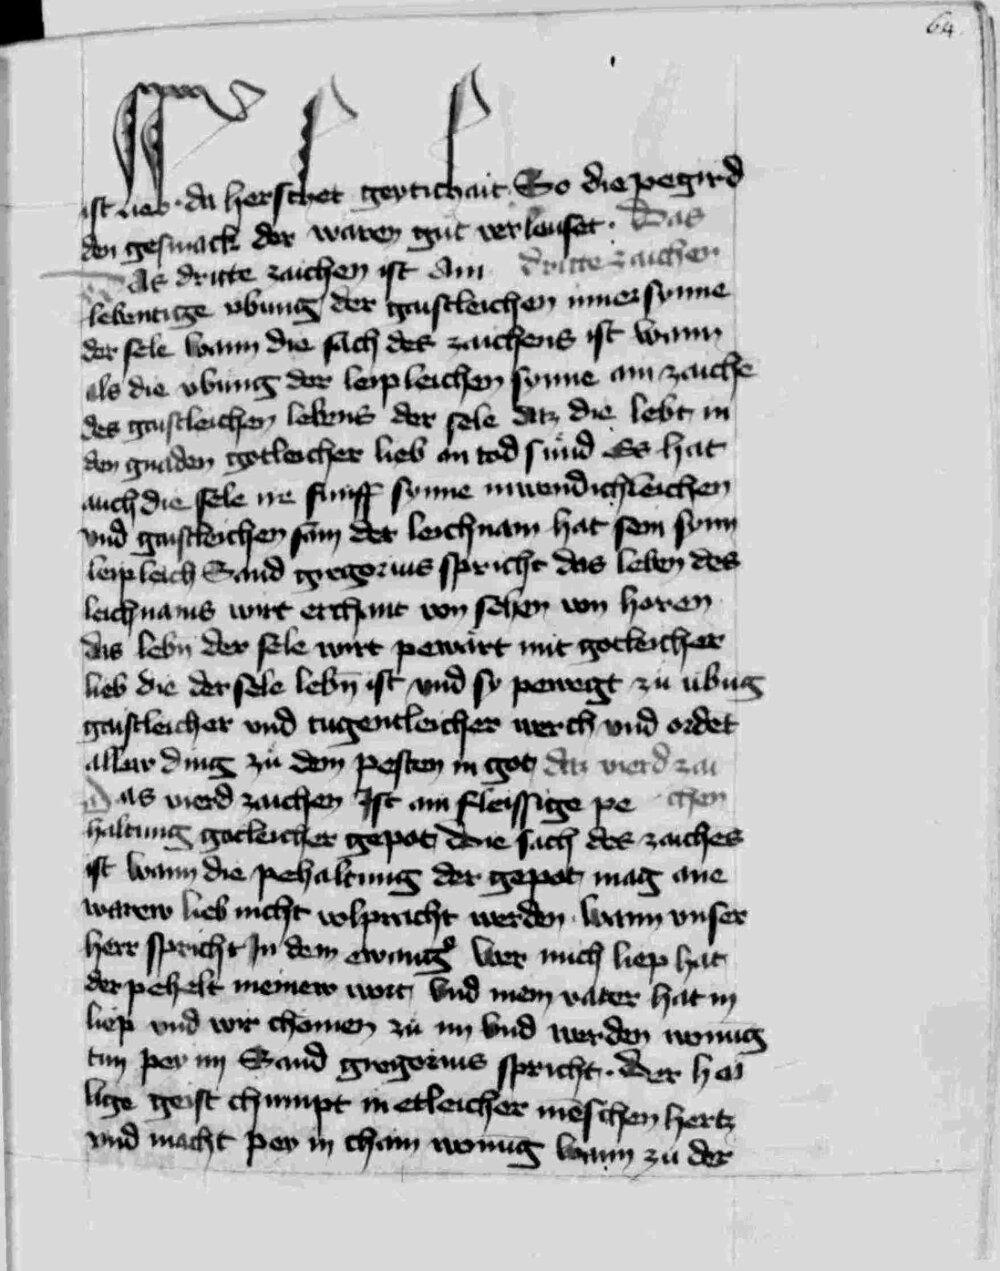 64
ist lieb · da herschet geytichait · So die pegird
den gesmack der waren gut verleuset · Das
Das dritte zaichen ist Ain dritte zaichen
lebentige vbung der gaistleichen inner synne
der sele wann die sach des zaichens ist wann
als die vbung der leipleichen synne ain zaiche
des gaistleichen lebens der sele daz die lebt in
den gnaden gotleicher lieb an tod sund Es hat
auch die sele ire funff synne inwendichleichen
vnd gaistleichen sam der leichnam hat sein synn
leipleich Sand gregorius spricht das leben des
leichnams wirt erchant von sehen von horen
das lebn der sele wirt pewart mit gotleicher
lieb die der sele lebn ist vnd sy pewegt zu übug
gaistleicher vnd tugentleicher werch vnd ordet
allew ding zu dem pesten in got daz vierd zai
Das vierd zaichen Ist ain fleissige pe chen
haltung gotleicher gepot Die sach des zaiches
ist wann die pehaltung der gepot mag ane
warew lieb nicht volpracht werden · wann vnser
herr spricht In dem ewang° Wer mich liep hat
der pehelt meinew wort vnd mein vater hat in
liep vnd wir chomen zu im vnd werden wonug
tun pey im Sand gregorius spricht · Der hei
lige geist chumpt in etleicher meschen hertz
vnd macht pey in chain wonug wann zu der